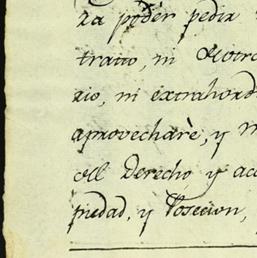 za poder pedir
tratto, ni
rio, ni extrahord
aprovecharè, y
Derecho, y acc
piedad, y Posecion,